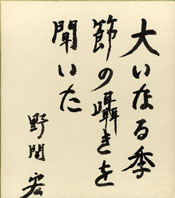 大いなる季
節の囁きを
聞いた
野間宏